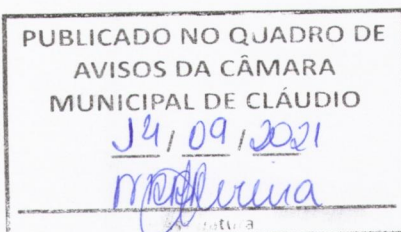 PUBLICADO NO QUADRO DE
AVISOS DA CÂMARA
MUNICIPAL DE CLÁUDIO
14/09/2021